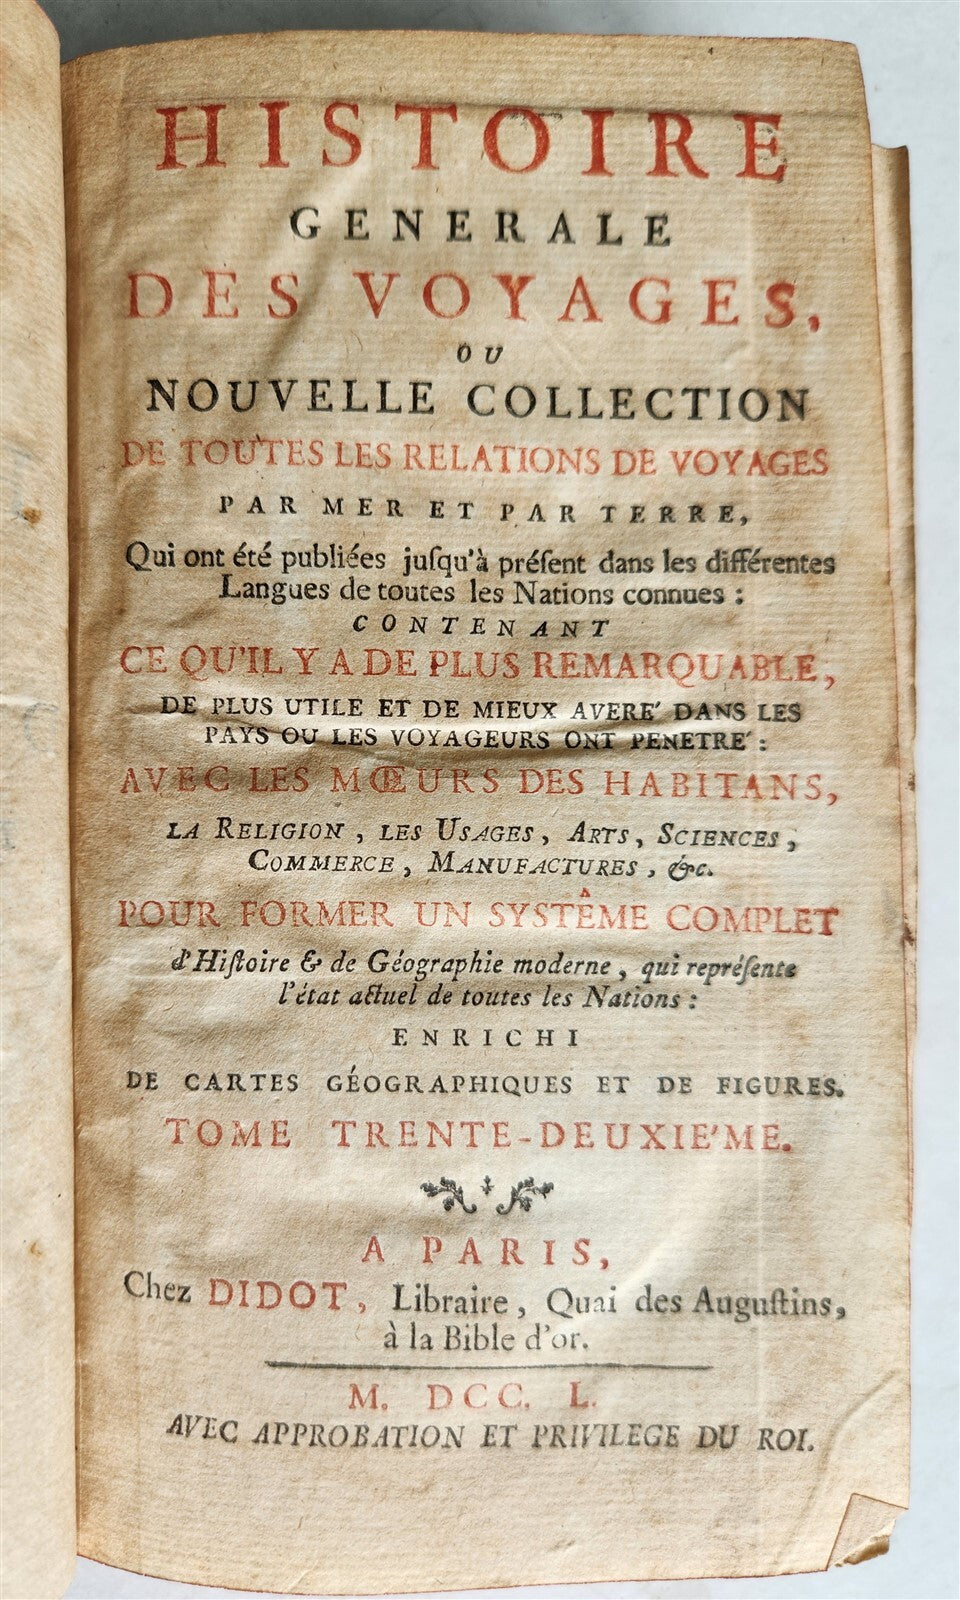 HISTOIRE
GENERALE
DES VOYAGES,
OU
NOUVELLE COLLECTION
DE TOUTES LES RELATIONS DE VOYAGES
PAR MER ET PAR TERRE,
Qui ont été publiées juſqu'à préſent dans les différentes
Langues de toutes les Nations connues :
CONTENANT
CE QU'IL Y A DE PLUS REMARQUABLE,
DE PLUS UTILE ET DE MIEUX AVERE' DANS LES
PAYS OU LES VOYAGEURS ONT PENETRE' :
AVEC LES MŒURS DES HABITANS,
LA RELIGION, LES USAGES, ARTS, SCIENCES,
COMMERCE, MANUFACTURES, &c.
POUR FORMER UN SYSTÊME COMPLET
d'Hiſtoire & de Géographie moderne, qui repréſente
l'état actuel de toutes les Nations :
ENRICHI
DE CARTES GÉOGRAPHIQUES ET DE FIGURES.
TOME TRENTE-DEUXIE'ME.
A PARIS,
Chez DIDOT, Libraire, Quai des Auguſtins,
à la Bible d'or.
M. DCC. L.
AVEC APPROBATION ET PRIVILEGE DU ROI.